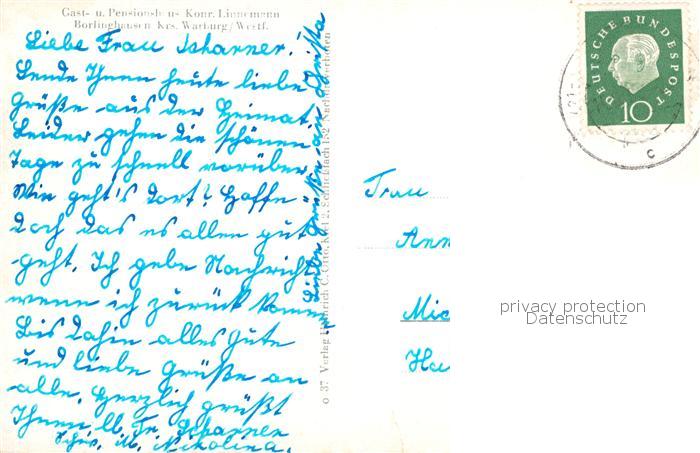 Gast- u. Pensionshaus Konr. Linnemann
Borlinghausen Krs. Warburg/Westf.
Liebe Frau Scharner.
Sende Ihnen heute liebe
Grüße aus der Heimat.
Leider gehen die schönen
Tage zu schnell vorüber.
Wie geht's dort? Hoffe
doch das es allen gut
geht. Ich gebe Nachricht
wenn ich zurück komme.
Bis dahin alles Gute
und liebe Grüße an
alle. Herzlich grüßt
Ihnen lb. Fr. Scharner
Schw. M. Nikolina.
Liebe Grüße an Christa
o 37 Verlag Heinrich C. Otto, Kiel 2, Schließfach 152 Nachdruck verboten
DEUTSCHE BUNDESPOST
10
c
Frau
Ann
Mic
Ha
privacy protection
Datenschutz